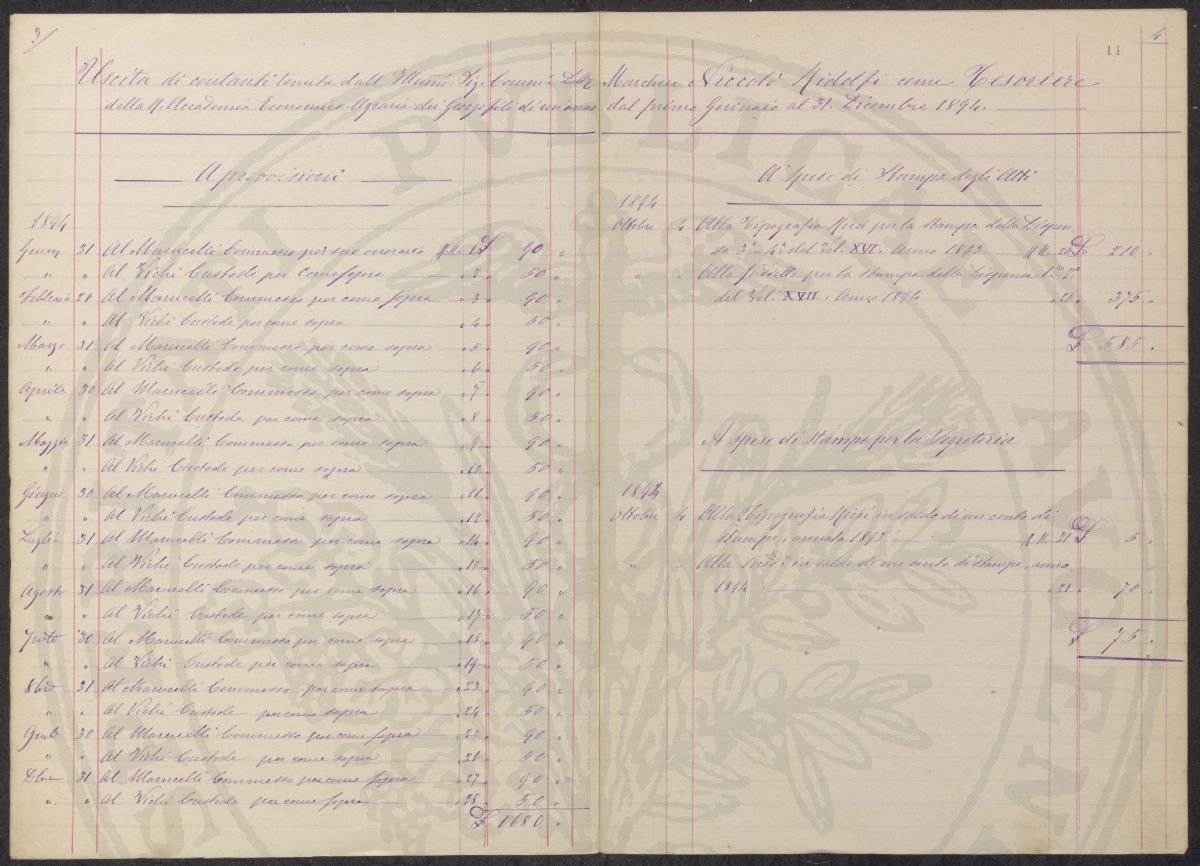 3
Uscita di contanti tenuta dall' Illumo: Sig.
della R. Accademia Economico-Agraria dei Georgofili di un anno
A provvisioni
1894
Genn 31 Al Marucelli Commesso per suo onorario N. 1 £ 90 "
" " Al Vichi Custode per come sopra " 2 " 50 "
Febbraio 28 Al Marucelli Commesso per come sopra " 3 " 90 "
" " Al Vichi Custode per come sopra " 4 " 50 "
Marzo 31 Al Marucelli Commesso per come sopra " 5 " 90 "
" " Al Vichi Custode per come sopra " 6 " 50 "
Aprile 30 Al Marucelli Commesso per come sopra " 7 " 90 "
" " Al Vichi Custode per come sopra " 8 " 50 "
Maggio 31 Al Marucelli Commesso per come sopra " 9 " 90 "
" " Al Vichi Custode per come sopra " 10 " 50 "
Giugno 30 Al Marucelli Commesso per come sopra " 11 " 90 "
" " Al Vichi Custode per come sopra " 12 " 50 "
Luglio 31 Al Marucelli Commesso per come sopra " 14 " 90 "
" " Al Vichi Custode per come sopra " 15 " 50 "
Agosto 31 Al Marucelli Commesso per come sopra " 16 " 90 "
" " Al Vichi Custode per come sopra " 17 " 50 "
30 Al Marucelli Commesso per come sopra " 18 " 90 "
" " Al Vichi Custode per come sopra " 19 " 50 "
8bre 31 Al Marucelli Commesso per come sopra " 23 " 90 "
" " Al Vichi Custode per come sopra " 24 " 50 "
30 Al Marucelli Commesso per come sopra " 25 " 90 "
" " Al Vichi Custode per come sopra " 26 " 50 "
Dbre 31 Al Marucelli Commesso per come sopra " 27 " 90 "
" " Al Vichi Custode per come sopra " 28 " 50 "
£ 1680 "
4
11
Marchese Niccolò Ridolfi come Tesoriere
dal primo Gennaio al 31. Dicembre 1894.
A spese di Stampa degli Atti
1894
Ottobre 4 Alla Tipografia Ricci per la stampa della Dispen-
sa del Vol. XVI. Anno 1893 N. 20 £ 210 "
" " Alla suddetta per la stampa della Dispensa 1.a 2.a
del Vol. XVII. Anno 1894 " 20 " 375 "
£ 585 "
A spese di Stampe per la Segreteria
1894
Ottobre 4 Alla Tipografia Ricci in saldo di un conto di
Stampe, annata 1893 N. 21 £ 5 "
" " Alla sudd.a in saldo di un conto di stampe, anno
1894 " 21 " 70 "
£ 75 "